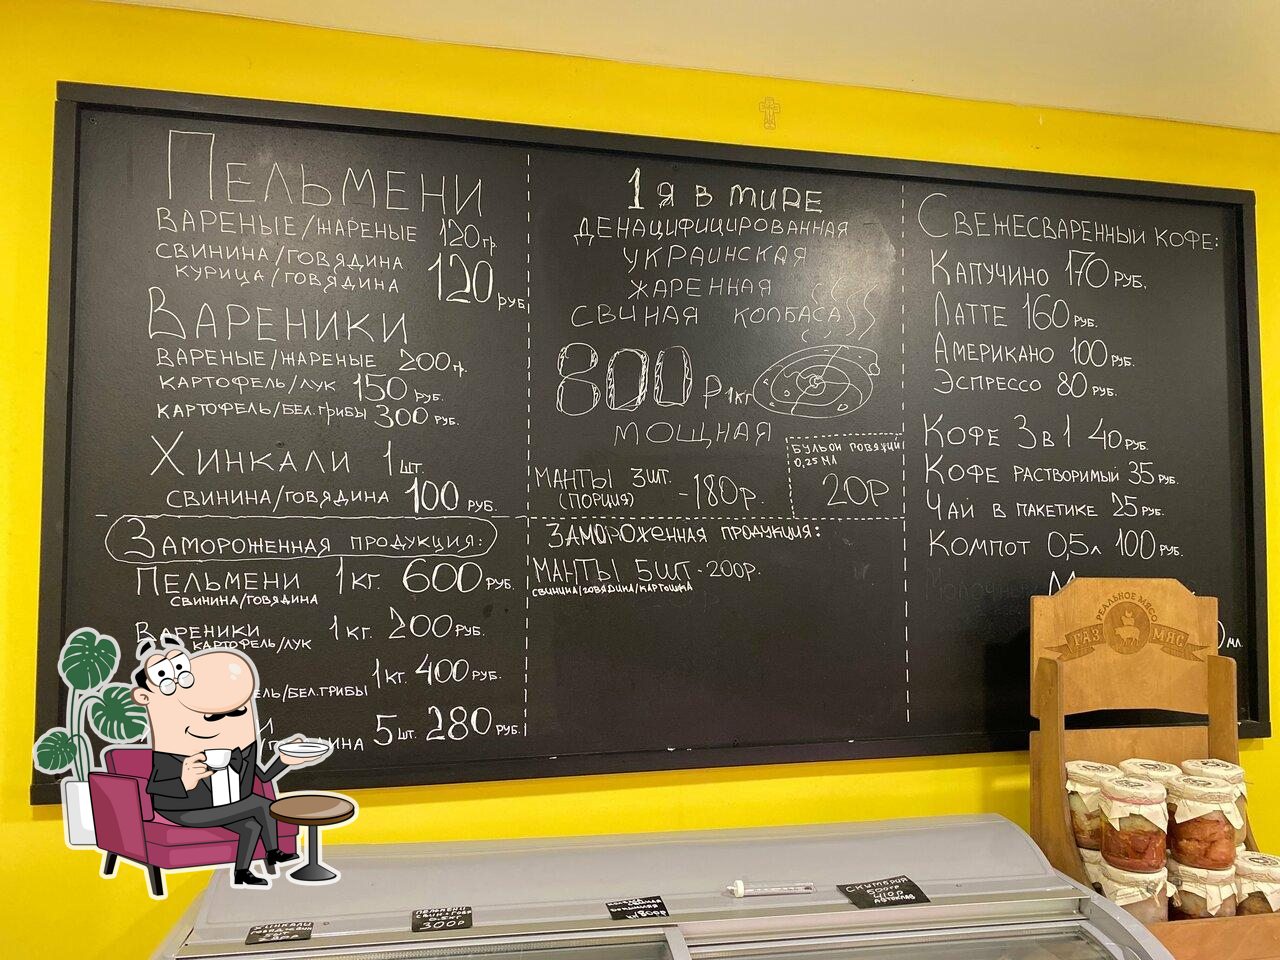 Пельмени
вареные/жареные 120гр.
свинина/говядина
курица/говядина 120 руб.
Вареники
вареные/жареные 200гр.
картофель/лук 150 руб.
картофель/бел.грибы 300 руб.
Хинкали 1шт.
свинина/говядина 100 руб.
Замороженная продукция:
Пельмени 1кг. 600 руб.
свинина/говядина
Вареники 1кг. 200 руб.
картофель/лук
1кг. 400 руб.
ель/бел.грибы
и 5шт. 280 руб.
/говядина
1я в мире
денацифицированная
украинская
жаренная
свчная колбаса
800р 1кг
мощная
Манты 3шт. -180р.
(порция)
Бульон говяжий
0,25мл
20р
Замороженная продукция:
Манты 5шт-200р.
свинина/говядина/картошка
Свежесваренный кофе:
Капучино 170 руб.
Латте 160 руб.
Американо 100 руб.
Эспрессо 80 руб.
Кофе 3в1 40 руб.
Кофе растворимый 35 руб.
Чай в пакетике 25 руб.
Компот 0,5л 100 руб.
мл.
РЕАЛЬНОЕ МЯСО
ГАЗ МЯС
Хинкали
5шт
Пельмени
свин+говя
0.5кг
300р
Скумбрия
500гр
410р
автоклав